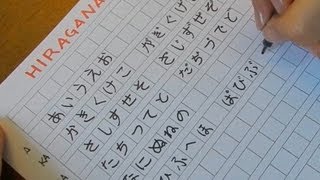 HIRAGANA
A
KA
あいうえお
かきくけこ
さしすせそ
たちつてと
なにぬねの
ひふへほ
がぎぐげご
ざじずぜぞ
だぢづでど
ばびぶ